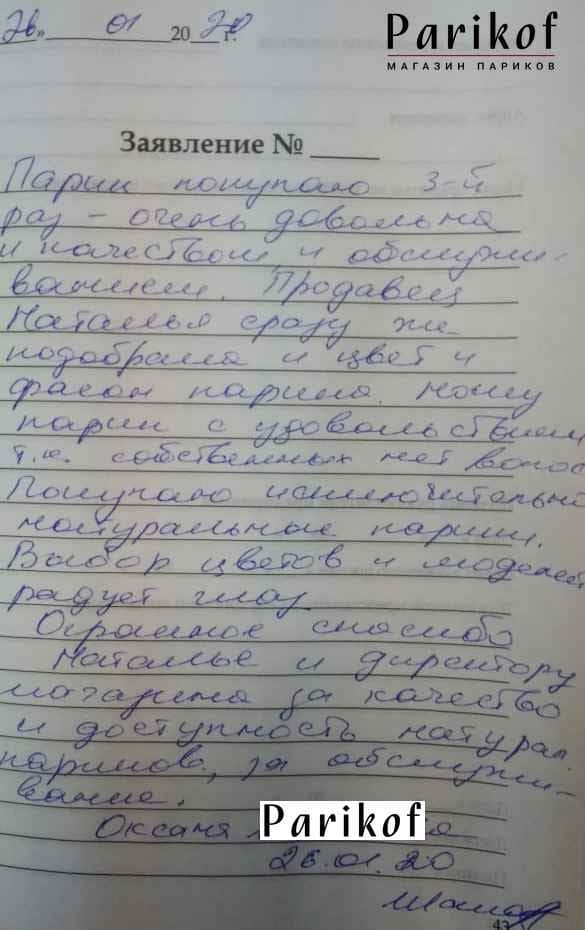 26» 01 2020 г.
Parikof
МАГАЗИН ПАРИКОВ
Заявление №
Парик покупаю 3-й
раз - очень довольна
и качеством и обслужи-
ванием. Продавец
Наталья сразу же
подобрала и цвет и
фасон парика. Ношу
парик с удовольствием
т.к. собственных нет волос
Покупаю исключительно
натуральные парики.
Выбор цветов и моделей
радует глаз
Огромное спасибо
Наталье и директору
магазина за качество
и доступность натурал.
париков, за обслужи-
вание.
Оксана Parikof
26.01.20
43